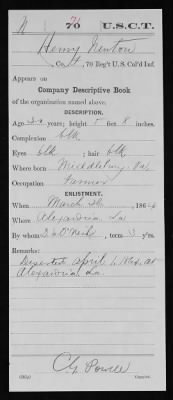 N 70 U.S.C.T.
Henry Newton
Co. , 70 Reg't U.S. Col'd Inf.
Appears on
Company Descriptive Book
of the organization named above.
DESCRIPTION.
Age years; height 5 feet 8 inches.
Complexion Blk
Eyes Blk ; hair Blk
Where born Middleburg, Va
Occupation Farmer
ENLISTMENT.
When March 26 , 1864
Where Alexandria, La
By whom D. O'Neil ; term 3 y'rs.
Remarks:
Deserted April 6, 1864, at
Alexandria, La.
Copyist.